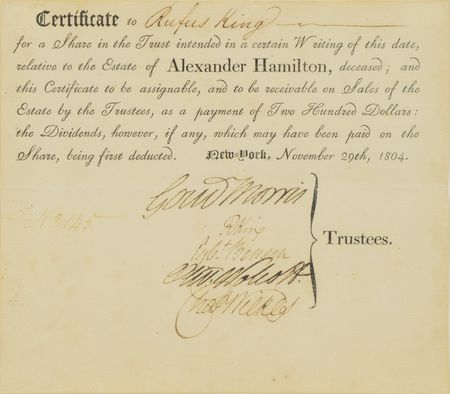 Certificate to Rufus King
for a Share in the Trust intended in a certain Writing of this date,
relative to the Estate of Alexander Hamilton, deceased; and
this Certificate to be assignable, and to be receivable on Sales of the
Estate by the Trustees, as a payment of Two Hundred Dollars:
the Dividends, however, if any, which may have been paid on the
Share, being first deducted. New-York, November 29th, 1804.
Gouv Morris
No. 145.
R King
Egbt. Benson
Trustees.
Oliv. Wolcott.
Chas Wilkes